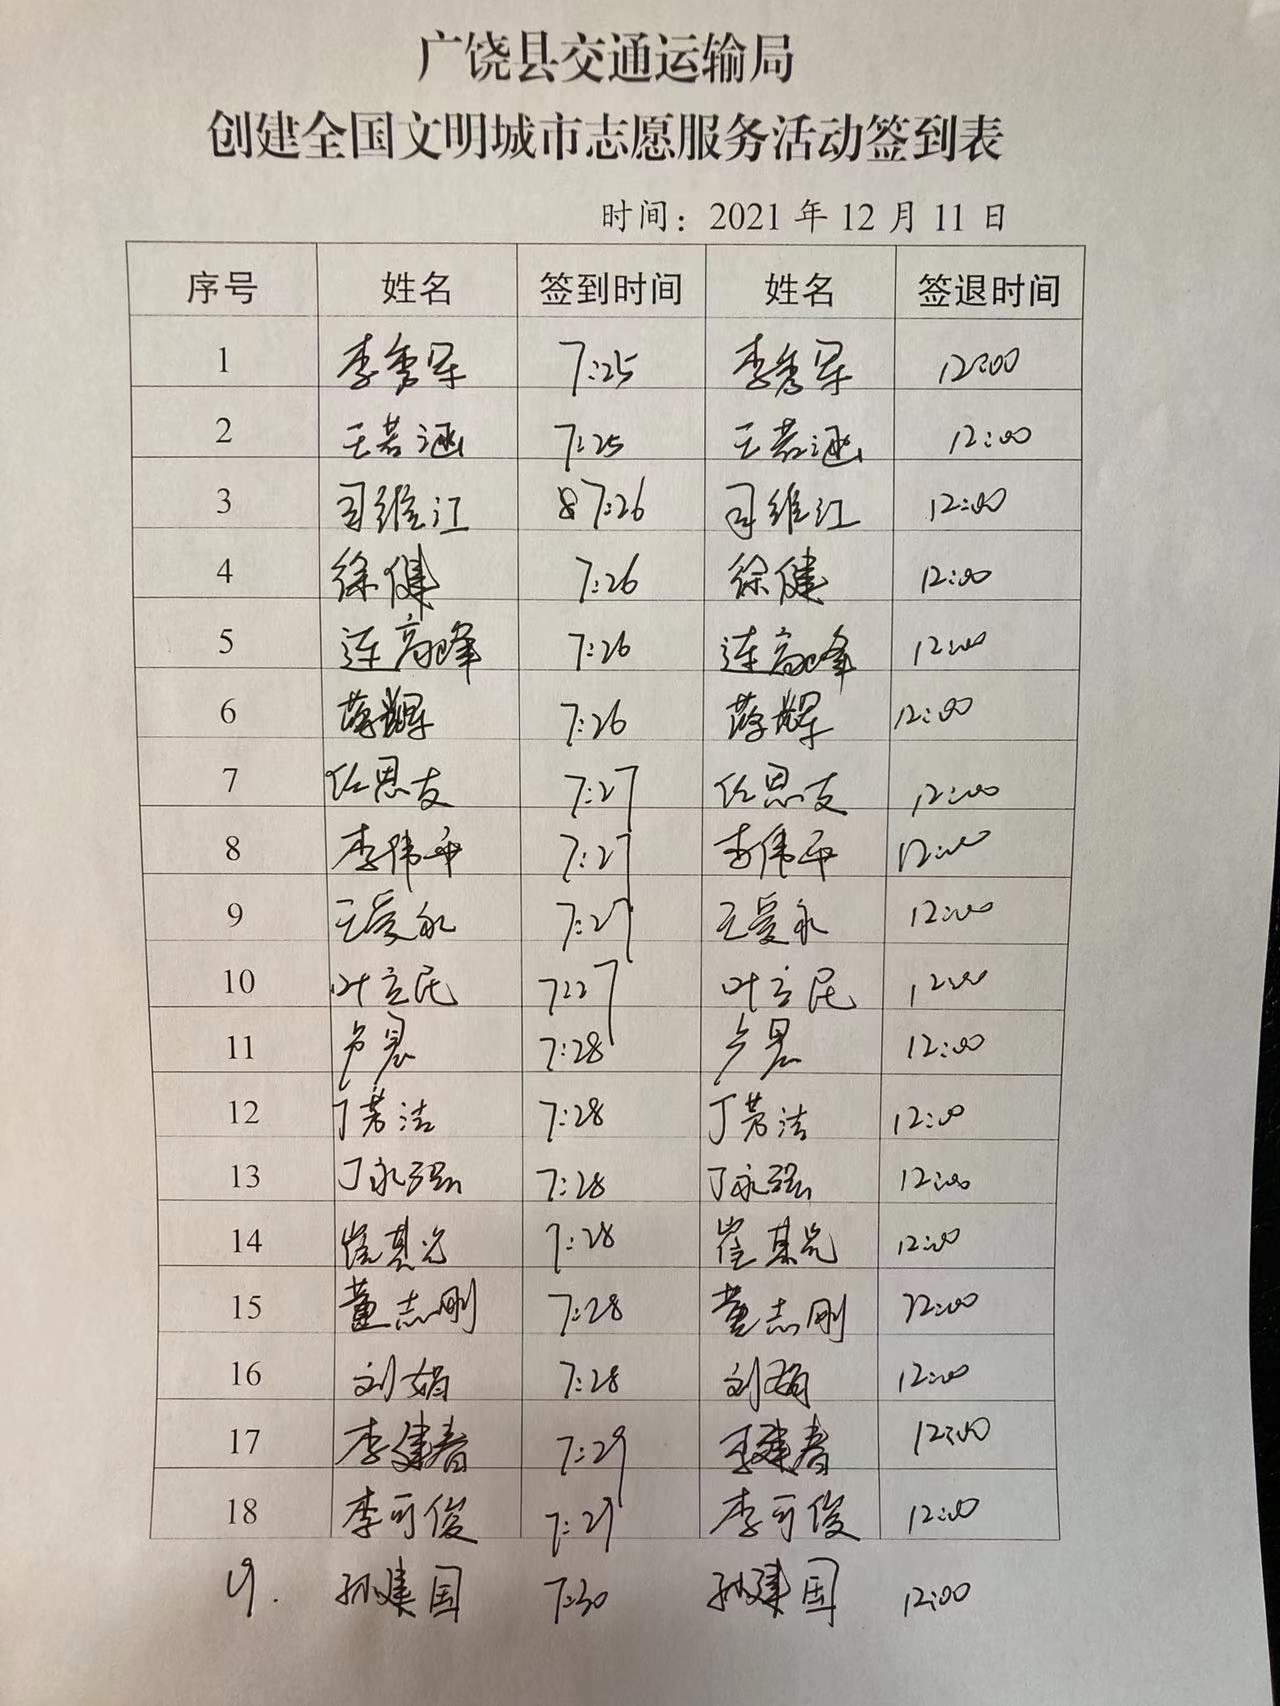 广饶县交通运输局
创建全国文明城市志愿服务活动签到表
时间：2021年12月11日
序号 姓名 签到时间 姓名 签退时间
1 李秀军 7:25 李秀军 12:00
2 王若涵 7:25 王若涵 12:00
3 司维江 8 7:26 司维江 12:00
4 徐健 7:26 徐健 12:00
5 连高峰 7:26 连高峰 12:00
6 薛辉 7:26 薛辉 12:00
7 任思友 7:27 任思友 12:00
8 李伟平 7:27 李伟平 12:00
9 王爱永 7:27 王爱永 12:00
10 叶立民 7:27 叶立民 12:00
11 7:28 12:00
12 丁芳洁 7:28 丁芳洁 12:00
13 丁永强 7:28 丁永强 12:00
14 崔其光 7:28 崔其光 12:00
15 董志刚 7:28 董志刚 12:00
16 刘娟 7:28 刘娟 12:00
17 李建春 7:29 李建春 12:00
18 李可俊 7:29 李可俊 12:00
19. 孙建国 7:30 孙建国 12:00